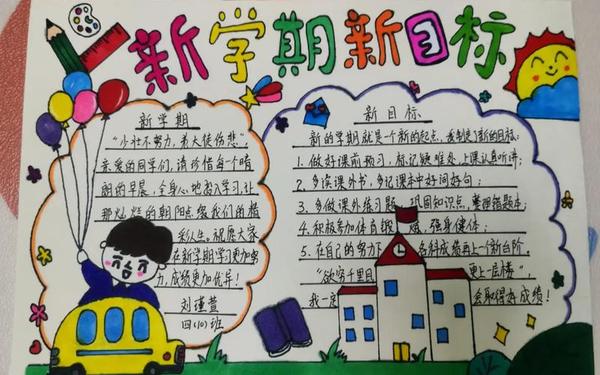 新学期新目标
新学期
“少壮不努力,老大徒伤悲”,
亲爱的同学们,请珍惜每个晴
朗的早晨,全身心地投入学习,让
那灿烂的朝阳点缀我们的精
彩人生。祝愿大家
在新学期学习更加努
力,成绩更加优异!
刘瑾萱
四(10)班
新目标
新的学期就是一个新的起点,我制定了新的目标:
1、做好课前预习,标记疑难处,上课认真听讲;
2、多读课外书,多记课本中好词好句;
3、多做课外练习题,巩固知识点,整理错题本;
4、积极参加体育锻炼,强身健体;
5、在自己的努力下 各科成绩再上一个新台阶。
“欲穷千里目 更上一层楼”,
我一定 会取得好成绩!